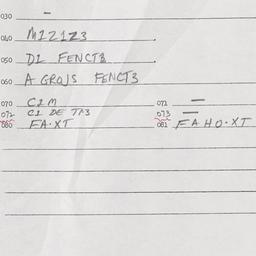 030 —
040 M12123
050 D1 FENCTB
060 A GROJS FENCTB
070 C2M 071 —
072 C1 DE TAB 073 —
080 FA.XT 081 FAHO.XT